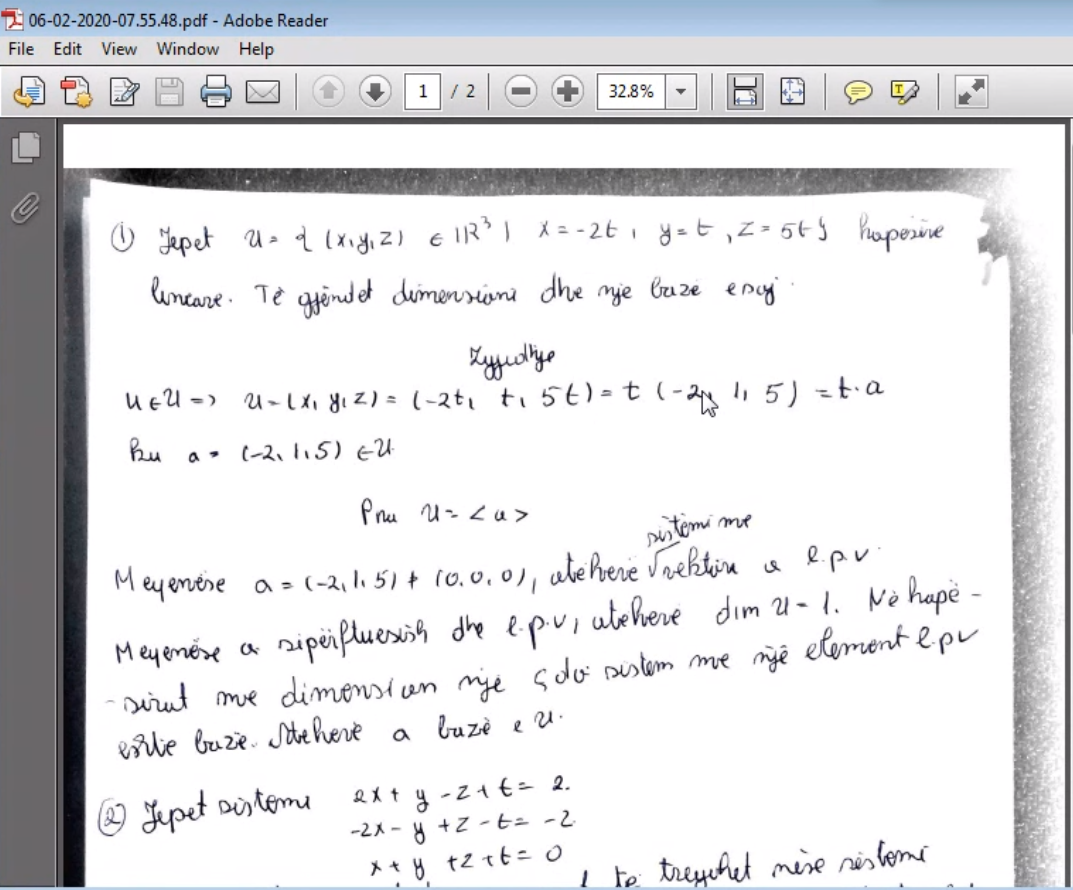 06-02-2020-07.55.48.pdf - Adobe Reader
File Edit View Window Help
1 / 2 32.8%
① Jepet U = { (x,y,z) ∈ IR³ | x = -2t, y = t, z = 5t } hapesire
lineare. Të gjëndet dimensioni dhe nje bazë e saj.
Zgjidhje
u ∈ U => u = (x, y, z) = (-2t, t, 5t) = t (-2, 1, 5) = t·a
ku a = (-2, 1, 5) ∈ U
Pra U = <a>
sistemi me
Meqenëse a = (-2, 1, 5) ≠ (0, 0, 0), atëherë √ vektorin a l.p.v.
Meqenëse a sipërftuesish dhe l.p.v, atëherë dim U = 1. Në hapë-
-sirat me dimension një çdo sistem me një element l.p.v
është bazë. Atëherë a bazë e U.
② Jepet sistemi 2x + y - z + t = 2.
-2x - y + z - t = -2
x + y + z + t = 0
të tregohet nëse sistemi